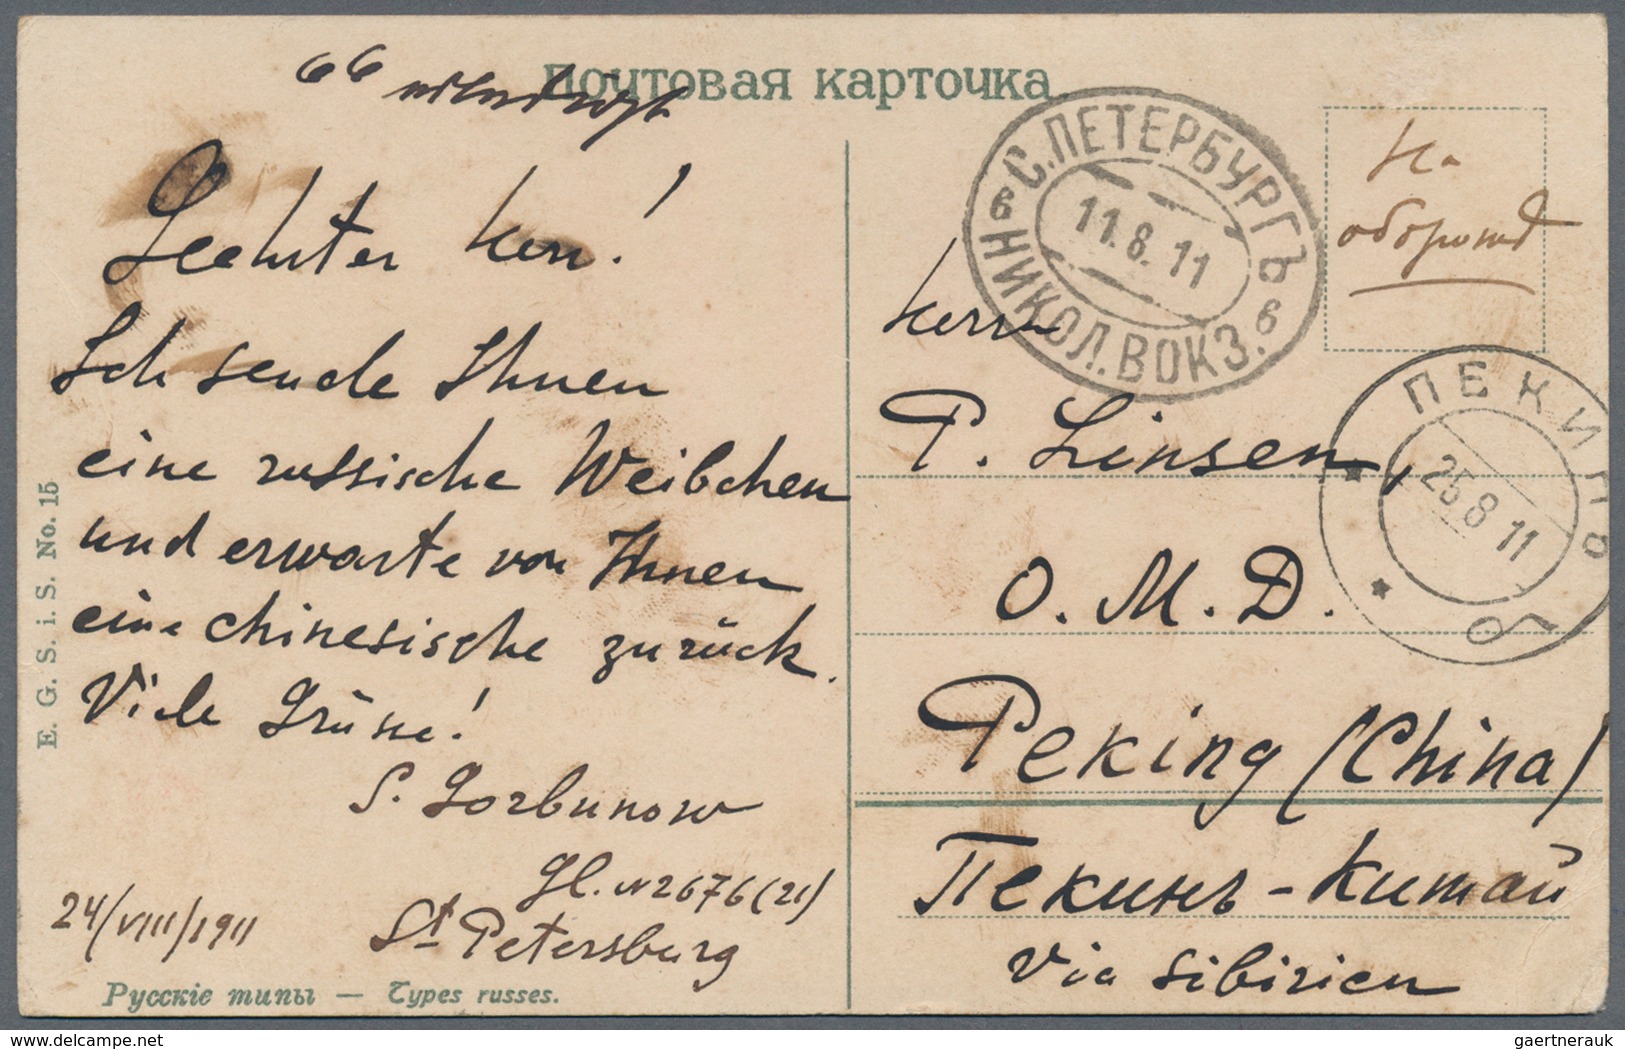 Почтовая карточка
Geehrter Herr!
Ich sende Ihnen
eine russische Weibchen
und erwarte von Ihnen
eine chinesische zurück.
Viele Grüsse!
S. Gorbunow
Gl. N 2676 (21)
24/VIII/1911
St Petersburg
Русскіе типы — Types russes.
E. G. S. i. S. No. 15
С. ПЕТЕРБУРГЪ
11.8.11
в НИКОЛ. ВОКЗ. в
На
оборотѣ
ПЕКИНЪ
25 8 11
Б
Herrn
P. Linsen,
O. M. D.
Peking (China)
Пекинъ - Китай
via Sibirien
www.delcampe.net
gaertnerauk